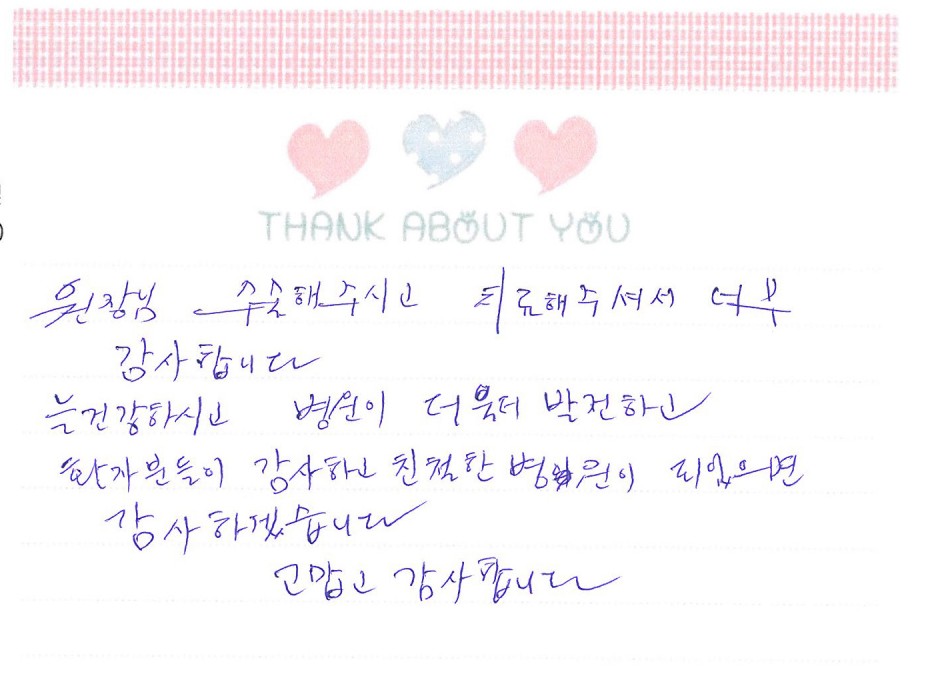 THANK ABOUT YOU
원장님 수술해주시고 치료해주셔서 너무
감사합니다
늘건강하시고 병원이 더욱더 발전하고
환자분들이 감사하고 친절한 병원이 되었으면
감사하겠습니다
고맙고 감사합니다